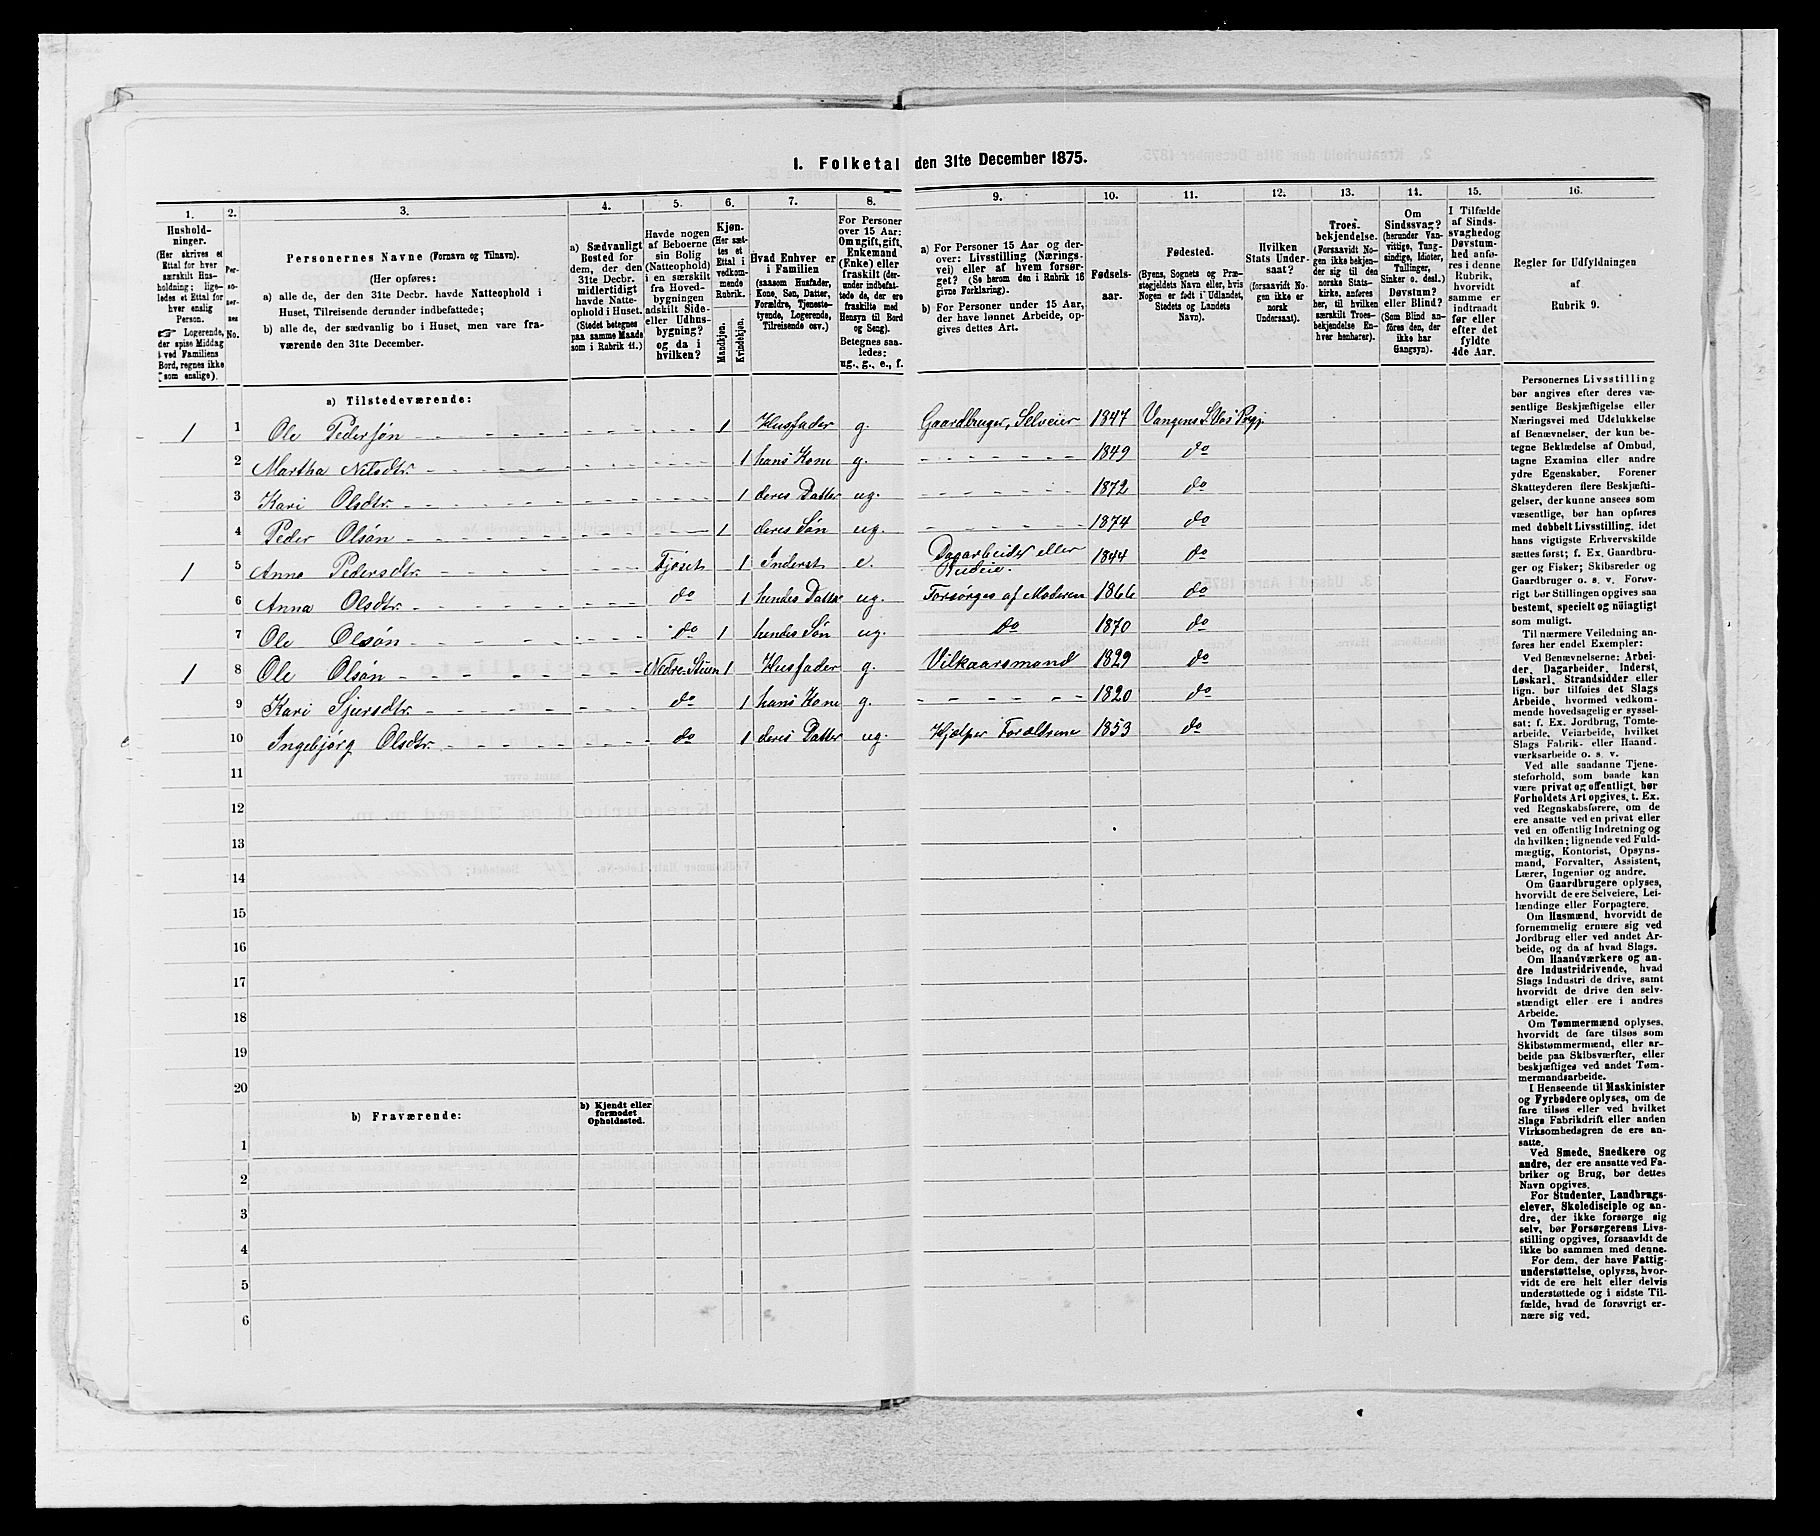 1. Folketal den 31te December 1875.
1. 2. 3. 4. 5. 6. 7. 8. 9. 10. 11. 12. 13. 14. 15. 16.
Hushold-
ninger.
(Her skrives et
Ettal for hver
særskilt Hus-
holdning; lige-
ledes et Ettal for
hver enslig
Person.
☞ Logerende,
der spise Middag
ved Familiens
Bord, regnes ikke
som enslige).
Per-
so-
ner-
nes
No.
Personernes Navne (Fornavn og Tilnavn).
(Her opføres:
a) alle de, der den 31te Decbr. havde Natteophold i
Huset, Tilreisende derunder indbefattede;
b) alle de, der sædvanlig bo i Huset, men vare fra-
værende den 31te December.
a) Sædvanligt
Bosted for
dem, der den
31te Decbr.
midlertidigt
havde Natte-
ophold i Huset.
(Stedet betegnes
paa samme Maade
som i Rubrik 11.)
Havde nogen
af Beboerne
sin Bolig
(Natteophold)
i en særskilt
fra Hoved-
bygningen
adskilt Side-
eller Udhus-
bygning?
og da i
hvilken?
Kjøn.
(Her sæt-
tes et
Ettal i
vedkom-
mende
Rubrik.
Mandkjøn.
Kvindekjøn.
Hvad Enhver er
i Familien
(saasom Husfader,
Kone, Søn, Datter,
Forældre, Tjeneste-
tyende, Logerende,
Tilreisende osv.)
For Personer
over 15 Aar:
Om ugift, gift,
Enkemand
(Enke) eller
fraskilt (der-
under indbefat-
tede de, der ere
fraskilte med
Hensyn til Bord
og Seng).
Betegnes saa-
ledes:
ug., g., e., f.
a) For Personer 15 Aar og der-
over: Livsstilling (Nærings-
vei) eller af hvem forsør-
get? (Se herom den i Rubrik 16
givne Forklaring).
b) For Personer under 15 Aar,
der have lønnet Arbeide, op-
gives dettes Art.
Fødsels-
aar.
Fødested.
(Byens, Sognets og Præ-
stegjeldets Navn eller, hvis
Nogen er født i Udlandet,
Stedets og Landets
Navn).
Hvilken
Stats Under-
saat?
(forsaavidt No-
gen ikke er
norsk
Undersaat).
Troes-
bekjendelse.
(Forsaavidt No-
gen ikke bekjen-
der sig til den
norske Stats-
kirke, anføres
her, til hvilken
særskilt Troes-
bekjendelse En-
hver henhører).
Om
Sindssvag?
(herunder Van-
vittige, Tung-
sindige, Idioter,
Tullinger,
Sinker o. desl.)
Døvstum?
eller Blind?
(Som Blind an-
føres den, der
ikke har
Gangsyn).
I Tilfælde
af Sinds-
svaghed og
Døvstum-
hed anfø-
res i denne
Rubrik,
hvorvidt
samme er
indtraadt
før eller
efter det
fyldte
4de Aar.
Regler for Udfyldningen
af
Rubrik 9.
a) Tilstedeværende:
1 1 Ole Pedersøn 1 Husfader g. Gaardbruger, Selveier 1847 Vangens S. Vos Prgj.
2 Martha Nilsdtr. 1 hans Kone g. 1849 do
3 Kari Olsdtr. 1 deres Datter ug. 1872 do
4 Peder Olsøn 1 deres Søn ug. 1874 do
1 5 Anna Pedersdtr. Fjøset 1 Inderst e. Dagarbeider eller 1844 do
6 Anna Olsdtr. do 1 hendes Datter ug. Forsørges af Moderen 1866 do
7 Ole Olsøn do 1 hendes Søn ug. do 1870 do
1 8 Ole Olsøn Nedre-Stuen 1 Husfader g. Vilkaarsmand 1829 do
9 Kari Sjursdtr. do 1 hans Kone g. 1820 do
10 Ingebjørg Olsdtr. do 1 deres Datter ug. Hjelper Forældrene 1853 do
11
12
13
14
15
16
17
18
19
20
b) Fraværende:
b) Kjendt eller
formodet
Opholdssted.
1
2
3
4
5
6
Personernes Livsstilling
bør angives efter deres væ-
sentlige Beskjæftigelse eller
Næringsvei med Udelukkelse
af Benævnelser, der kun be-
tegne Beklædelse af Ombud,
tagne Examina eller andre
ydre Egenskaber. Forener
Skatteyderen flere Beskjæfti-
gelser, der kunne ansees som
væsentlige, bør han opføres
med dobbelt Livsstilling, idet
hans vigtigste Erhvervskilde
sættes først; f. Ex. Gaardbru-
ger og Fisker; Skibsreder og
Gaardbruger o. s. v. Forøv-
rigt bør Stillingen opgives saa
bestemt, specielt og nöiagtigt
som muligt.
Til nærmere Veiledning an-
føres her endel Exempler:
Ved Benævnelserne: Arbei-
der, Dagarbeider, Inderst,
Løskarl, Strandsidder eller
lign. bør tilføies det Slags
Arbeide, hvormed vedkom-
mende hovedsagelig er syssel-
sat; f. Ex. Jordbrug, Tomte-
arbeide, Veiarbeide, hvilket
Slags Fabrik- eller Haand-
værksarbeide o. s. v.
Ved alle saadanne Tjene-
steforhold, som baade kan
være privat og offentligt, bør
Forholdets Art opgives, t. Ex.
ved Regnskabsførere, om de
ere ansatte ved en privat eller
ved en offentlig Indretning og
da hvilken; lignende ved Fuld-
mægtig, Kontorist, Opsyns-
mand, Forvalter, Assistent,
Lærer, Ingeniør og andre.
Om Gaardbrugere oplyses,
hvorvidt de ere Selveiere, Lei-
lændinge eller Forpagtere.
Om Husmænd, hvorvidt de
fornemmelig ernære sig ved
Jordbrug eller ved andet Ar-
beide, og da af hvad Slags.
Om Haandværkere og an-
dre Industridrivende, hvad
Slags Industri de drive, samt
hvorvidt de drive den selv-
stændigt eller ere i andres
Arbeide.
Om Tømmermænd oplyses,
hvorvidt de fare tilsøs som
Skibstømmermænd, eller ar-
beide paa Skibsværfter, eller
beskjæftiges ved andet Tøm-
mermandsarbeide.
I Henseende til Maskinister
og Fyrbødere oplyses, om de
fare tilsøs eller ved hvilket
Slags Fabrikdrift eller anden
Virksomhedsgren de ere an-
satte.
Ved Smede, Snedkere og
andre, der ere ansatte ved Fa-
briker og Brug, bør dettes
Navn opgives.
For Studenter, Landbrugs-
elever, Skoledisciple og an-
dre, der ikke forsørge sig
selv, bør Forsørgerens Livs-
stilling opgives, forsaavidt de
ikke bo sammen med denne.
For dem, der have Fattig-
understøttelse, oplyses, hvor-
vidt de ere helt eller delvis
understøttede og i sidste Til-
fælde, hvad de forøvrigt er-
nære sig ved.